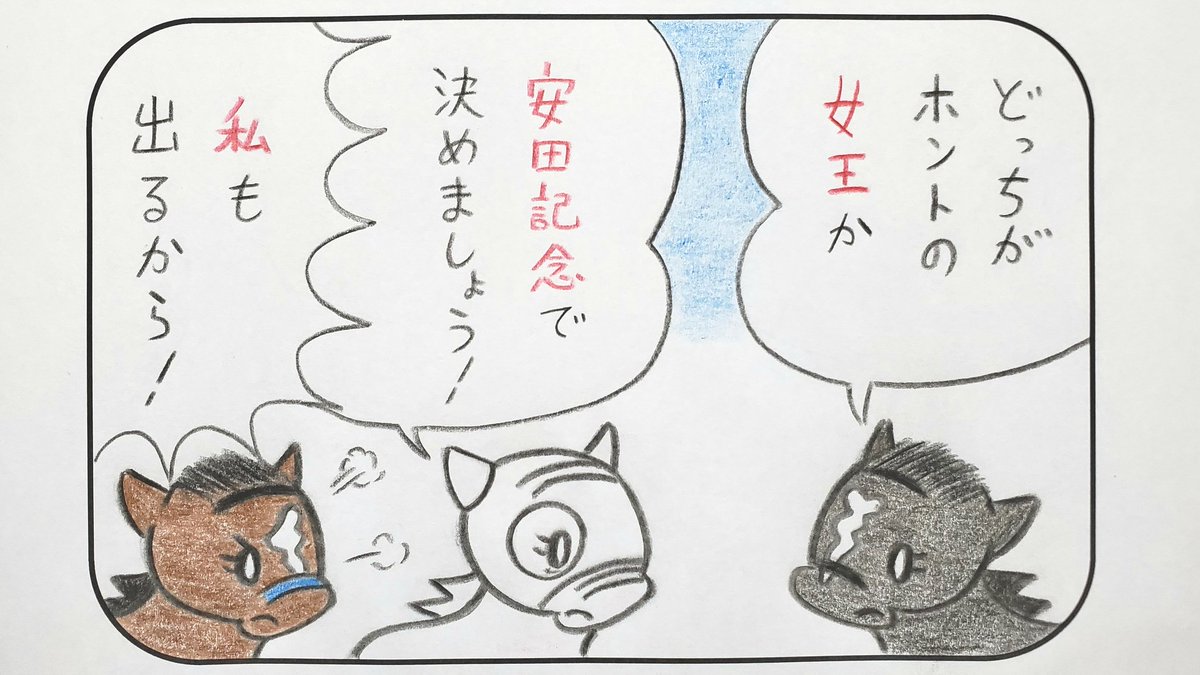 どっちが
ホントの
女王か
安田記念で
決めましょう!
私も
出るから!